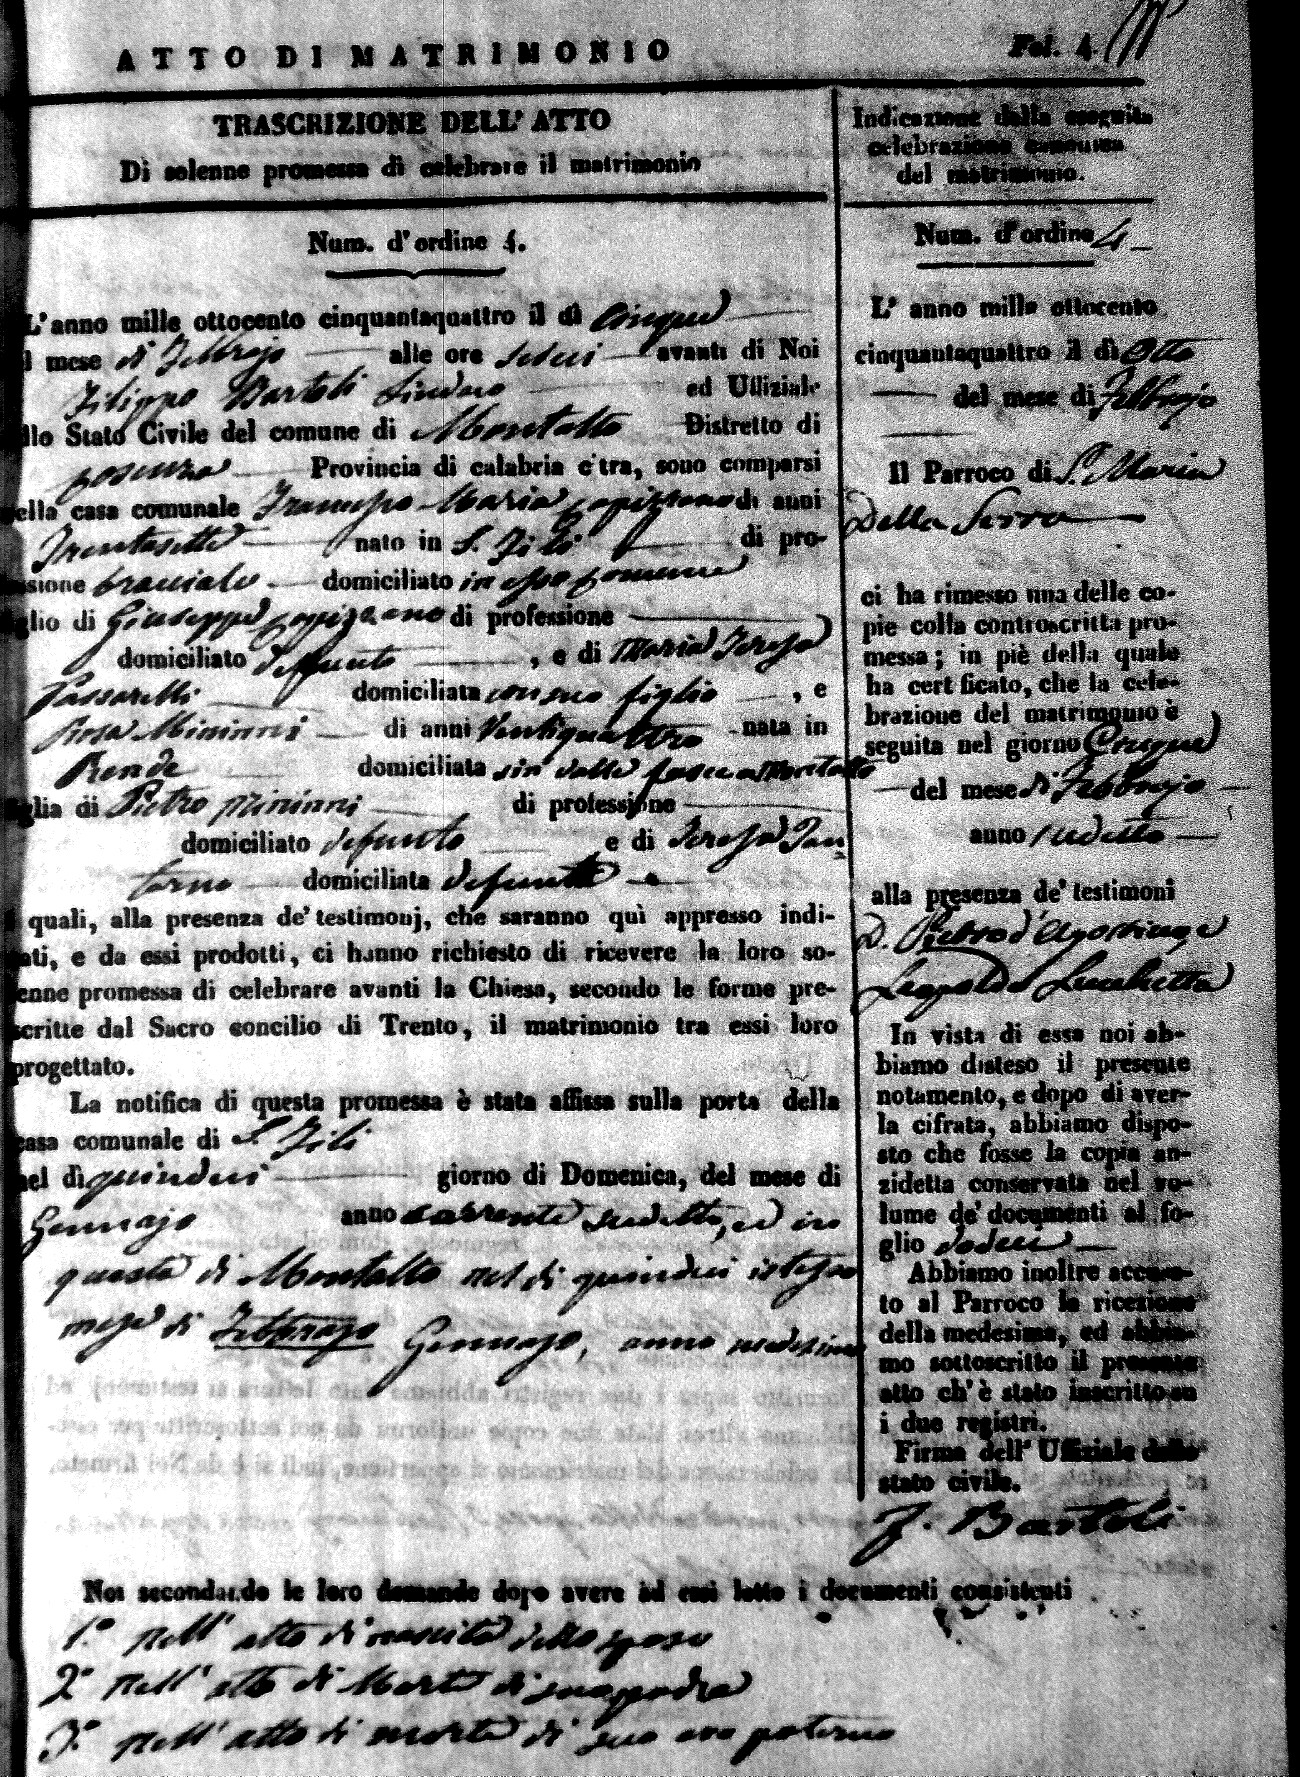 ATTO DI MATRIMONIO
Fol. 4
TRASCRIZIONE DELL' ATTO
Di solenne promessa di celebrare il matrimonio
Num. d'ordine 4.
L'anno mille ottocento cinquantaquattro il dì Cinque
l mese di Febbrajo alle ore sedici avanti di Noi
Filippo Bartoli Sindaco ed Uffiziale
llo Stato Civile del comune di Montalto Distretto di
Cosenza Provincia di calabria citra, sono comparsi
ella casa comunale Francesco Maria Capizzano di anni
Trentasette nato in S. Fili di pro-
ssione bracciale domiciliato in esso Comune
glio di Giuseppe Capizzano di professione
domiciliato defunto , e di Maria Teresa
Passarelli domiciliata con suo figlio , e
Rosa Mininni di anni Ventiquattro nata in
Rende domiciliata sin dalle fasce a Montalto
glia di Pietro Mininni di professione
domiciliato defunto e di Teresa
domiciliata defunta
i quali, alla presenza de' testimonj, che saranno quì appresso indi-
ati, e da essi prodotti, ci hanno richiesto di ricevere la loro so-
enne promessa di celebrare avanti la Chiesa, secondo le forme pre-
scritte dal Sacro concilio di Trento, il matrimonio tra essi loro
progettato.
La notifica di questa promessa è stata affissa sulla porta della
casa comunale di S. Fili
nel dì quindici giorno di Domenica, del mese di
Gennajo anno corrente sudetto, ed in
questa di Montalto nel dì quindici istesso
mese di Febbrajo Gennajo, anno medesimo
Indicazione della eseguita
celebrazione canonica
del matrimonio.
Num. d'ordine 4
L' anno mille ottocento
cinquantaquattro il dì Otto
del mese di Febbrajo
Il Parroco di S. Maria
Della Serra
ci ha rimesso una delle co-
pie colla controscritta pro-
messa; in piè della quale
ha certificato, che la cele-
brazione del matrimonio è
seguita nel giorno Cinque
del mese di Febbrajo
anno sudetto
alla presenza de' testimoni
D. Pietro d'Agostino e
Leopoldo Lucchetta
In vista di essa noi ab-
biamo disteso il presente
notamento, e dopo di aver-
la cifrata, abbiamo dispo-
sto che fosse la copia an-
zidetta conservata nel vo-
lume de' documenti al fo-
glio dodeci
Abbiamo inoltre accusa-
to al Parroco la ricezione
della medesima, ed abbia-
mo sottoscritto il presente
atto ch' è stato inscritto su
i due registri.
Firma dell' Uffiziale dello
stato civile.
F. Bartoli
Noi secondando le loro domande dopo avere ad essi letto i documenti consistenti
1.° nell' atto di nascita dello sposo
2° nell' atto di Morte di suo padre
3.° nell' atto di morte di suo avo paterno